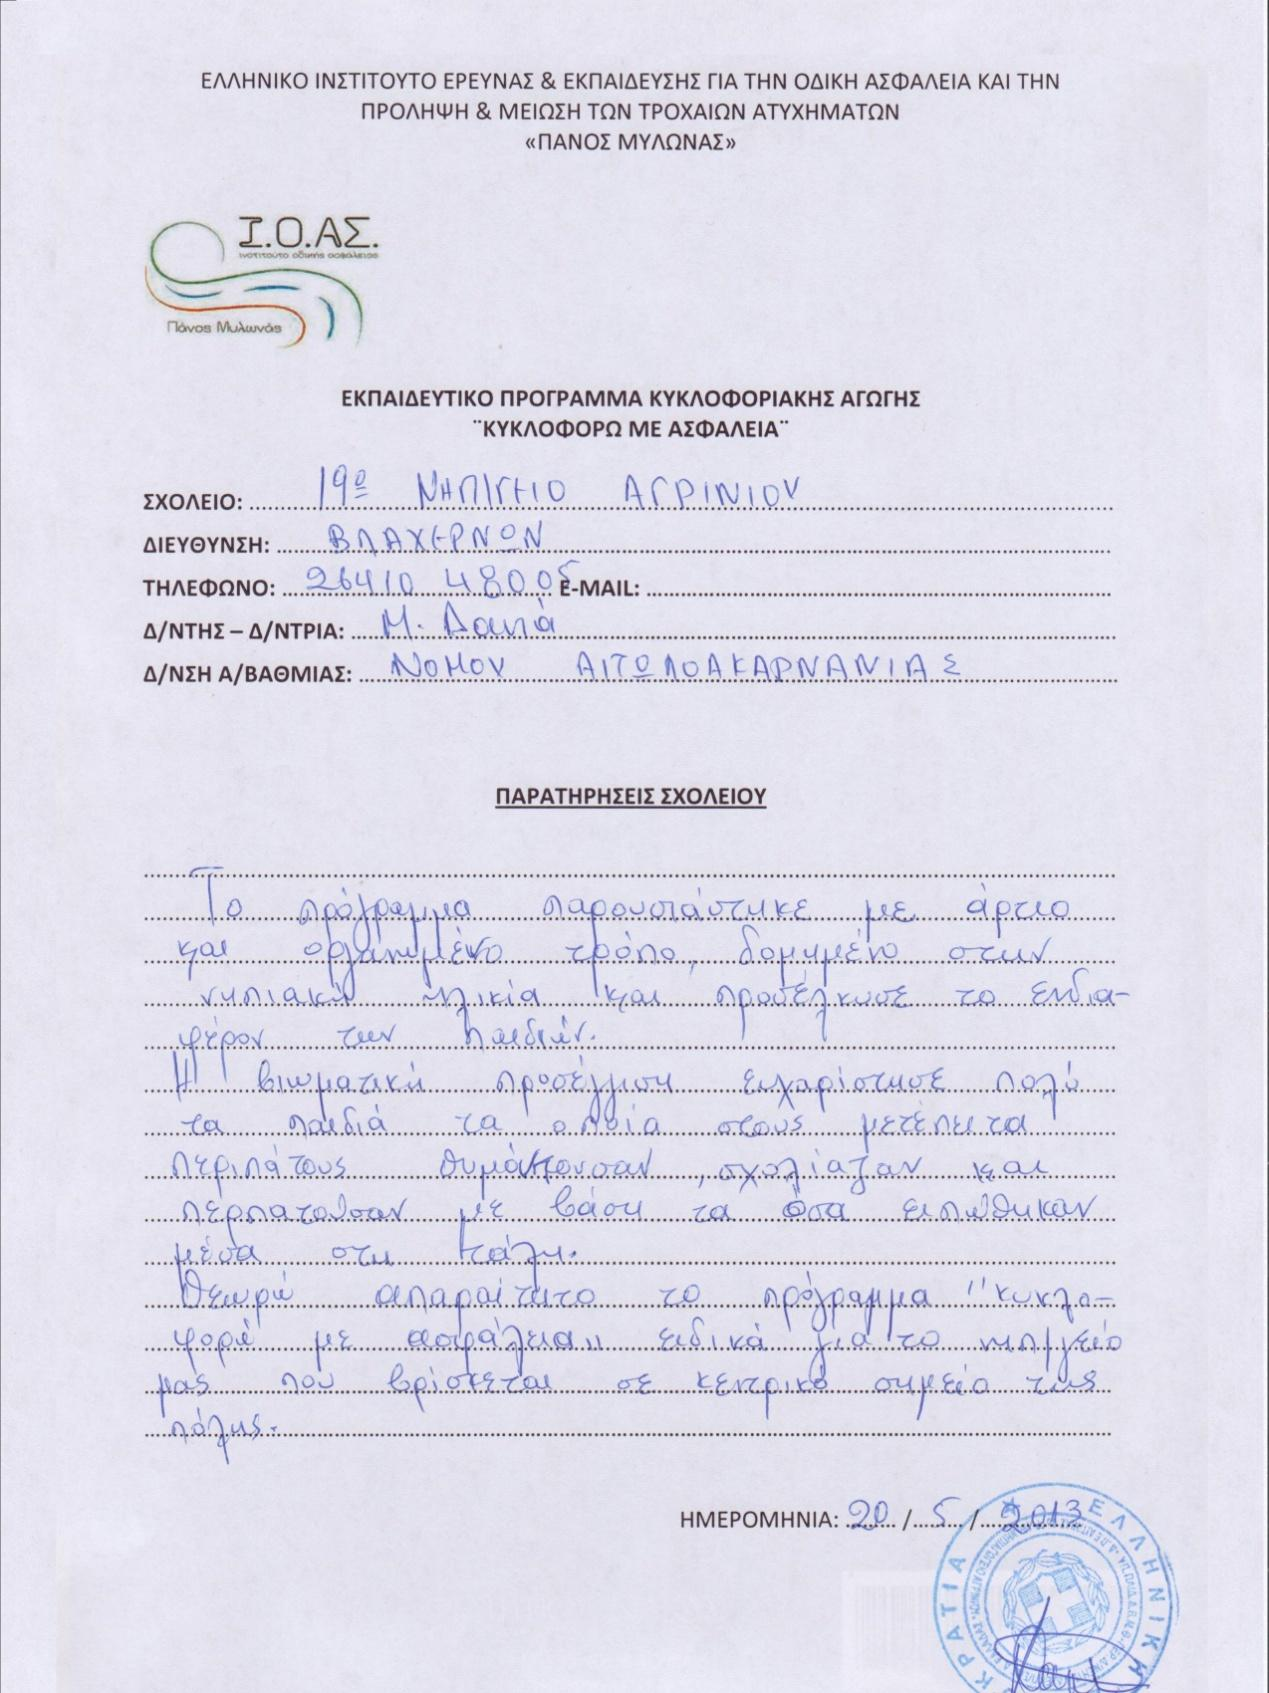 ΕΛΛΗΝΙΚΟ ΙΝΣΤΙΤΟΥΤΟ ΕΡΕΥΝΑΣ & ΕΚΠΑΙΔΕΥΣΗΣ ΓΙΑ ΤΗΝ ΟΔΙΚΗ ΑΣΦΑΛΕΙΑ ΚΑΙ ΤΗΝ
ΠΡΟΛΗΨΗ & ΜΕΙΩΣΗ ΤΩΝ ΤΡΟΧΑΙΩΝ ΑΤΥΧΗΜΑΤΩΝ
«ΠΑΝΟΣ ΜΥΛΩΝΑΣ»
Ι.Ο.ΑΣ.
ινστιτούτο οδικής ασφάλειας
Πάνος Μυλωνάς
ΕΚΠΑΙΔΕΥΤΙΚΟ ΠΡΟΓΡΑΜΜΑ ΚΥΚΛΟΦΟΡΙΑΚΗΣ ΑΓΩΓΗΣ
¨ΚΥΚΛΟΦΟΡΩ ΜΕ ΑΣΦΑΛΕΙΑ¨
ΣΧΟΛΕΙΟ: 19ο ΝΗΠΙΓΕΙΟ ΑΓΡΙΝΙΟΥ
ΔΙΕΥΘΥΝΣΗ: ΒΛΑΧΕΡΝΩΝ
ΤΗΛΕΦΩΝΟ: 26410 48005 E-MAIL:
Δ/ΝΤΗΣ – Δ/ΝΤΡΙΑ: Μ. Δανιά
Δ/ΝΣΗ Α/ΒΑΘΜΙΑΣ: ΝΟΜΟΥ ΑΙΤΩΛΟΑΚΑΡΝΑΝΙΑΣ
ΠΑΡΑΤΗΡΗΣΕΙΣ ΣΧΟΛΕΙΟΥ
Το πρόγραμμα παρουσιάστηκε με άρτιο
και οργανωμένο τρόπο, δομημένο στην
νηπιακή ηλικία και προσέλκυσε το ενδια-
φέρον των παιδιών.
Η βιωματική προσέγγιση ευχαρίστησε πολύ
τα παιδιά τα οποία στους μετέπειτα
περιπάτους θυμόντουσαν, σχολίαζαν και
περπατούσαν με βάση τα όσα ειπώθηκαν
μέσα στη τάξη.
Θεωρώ απαραίτητο το πρόγραμμα "κυκλο-
φορώ με ασφάλεια" ειδικά για το νηπ/γείο
μας που βρίσκεται σε κεντρικό σημείο της
πόλης.
ΗΜΕΡΟΜΗΝΙΑ: 20 / 5 / 2013